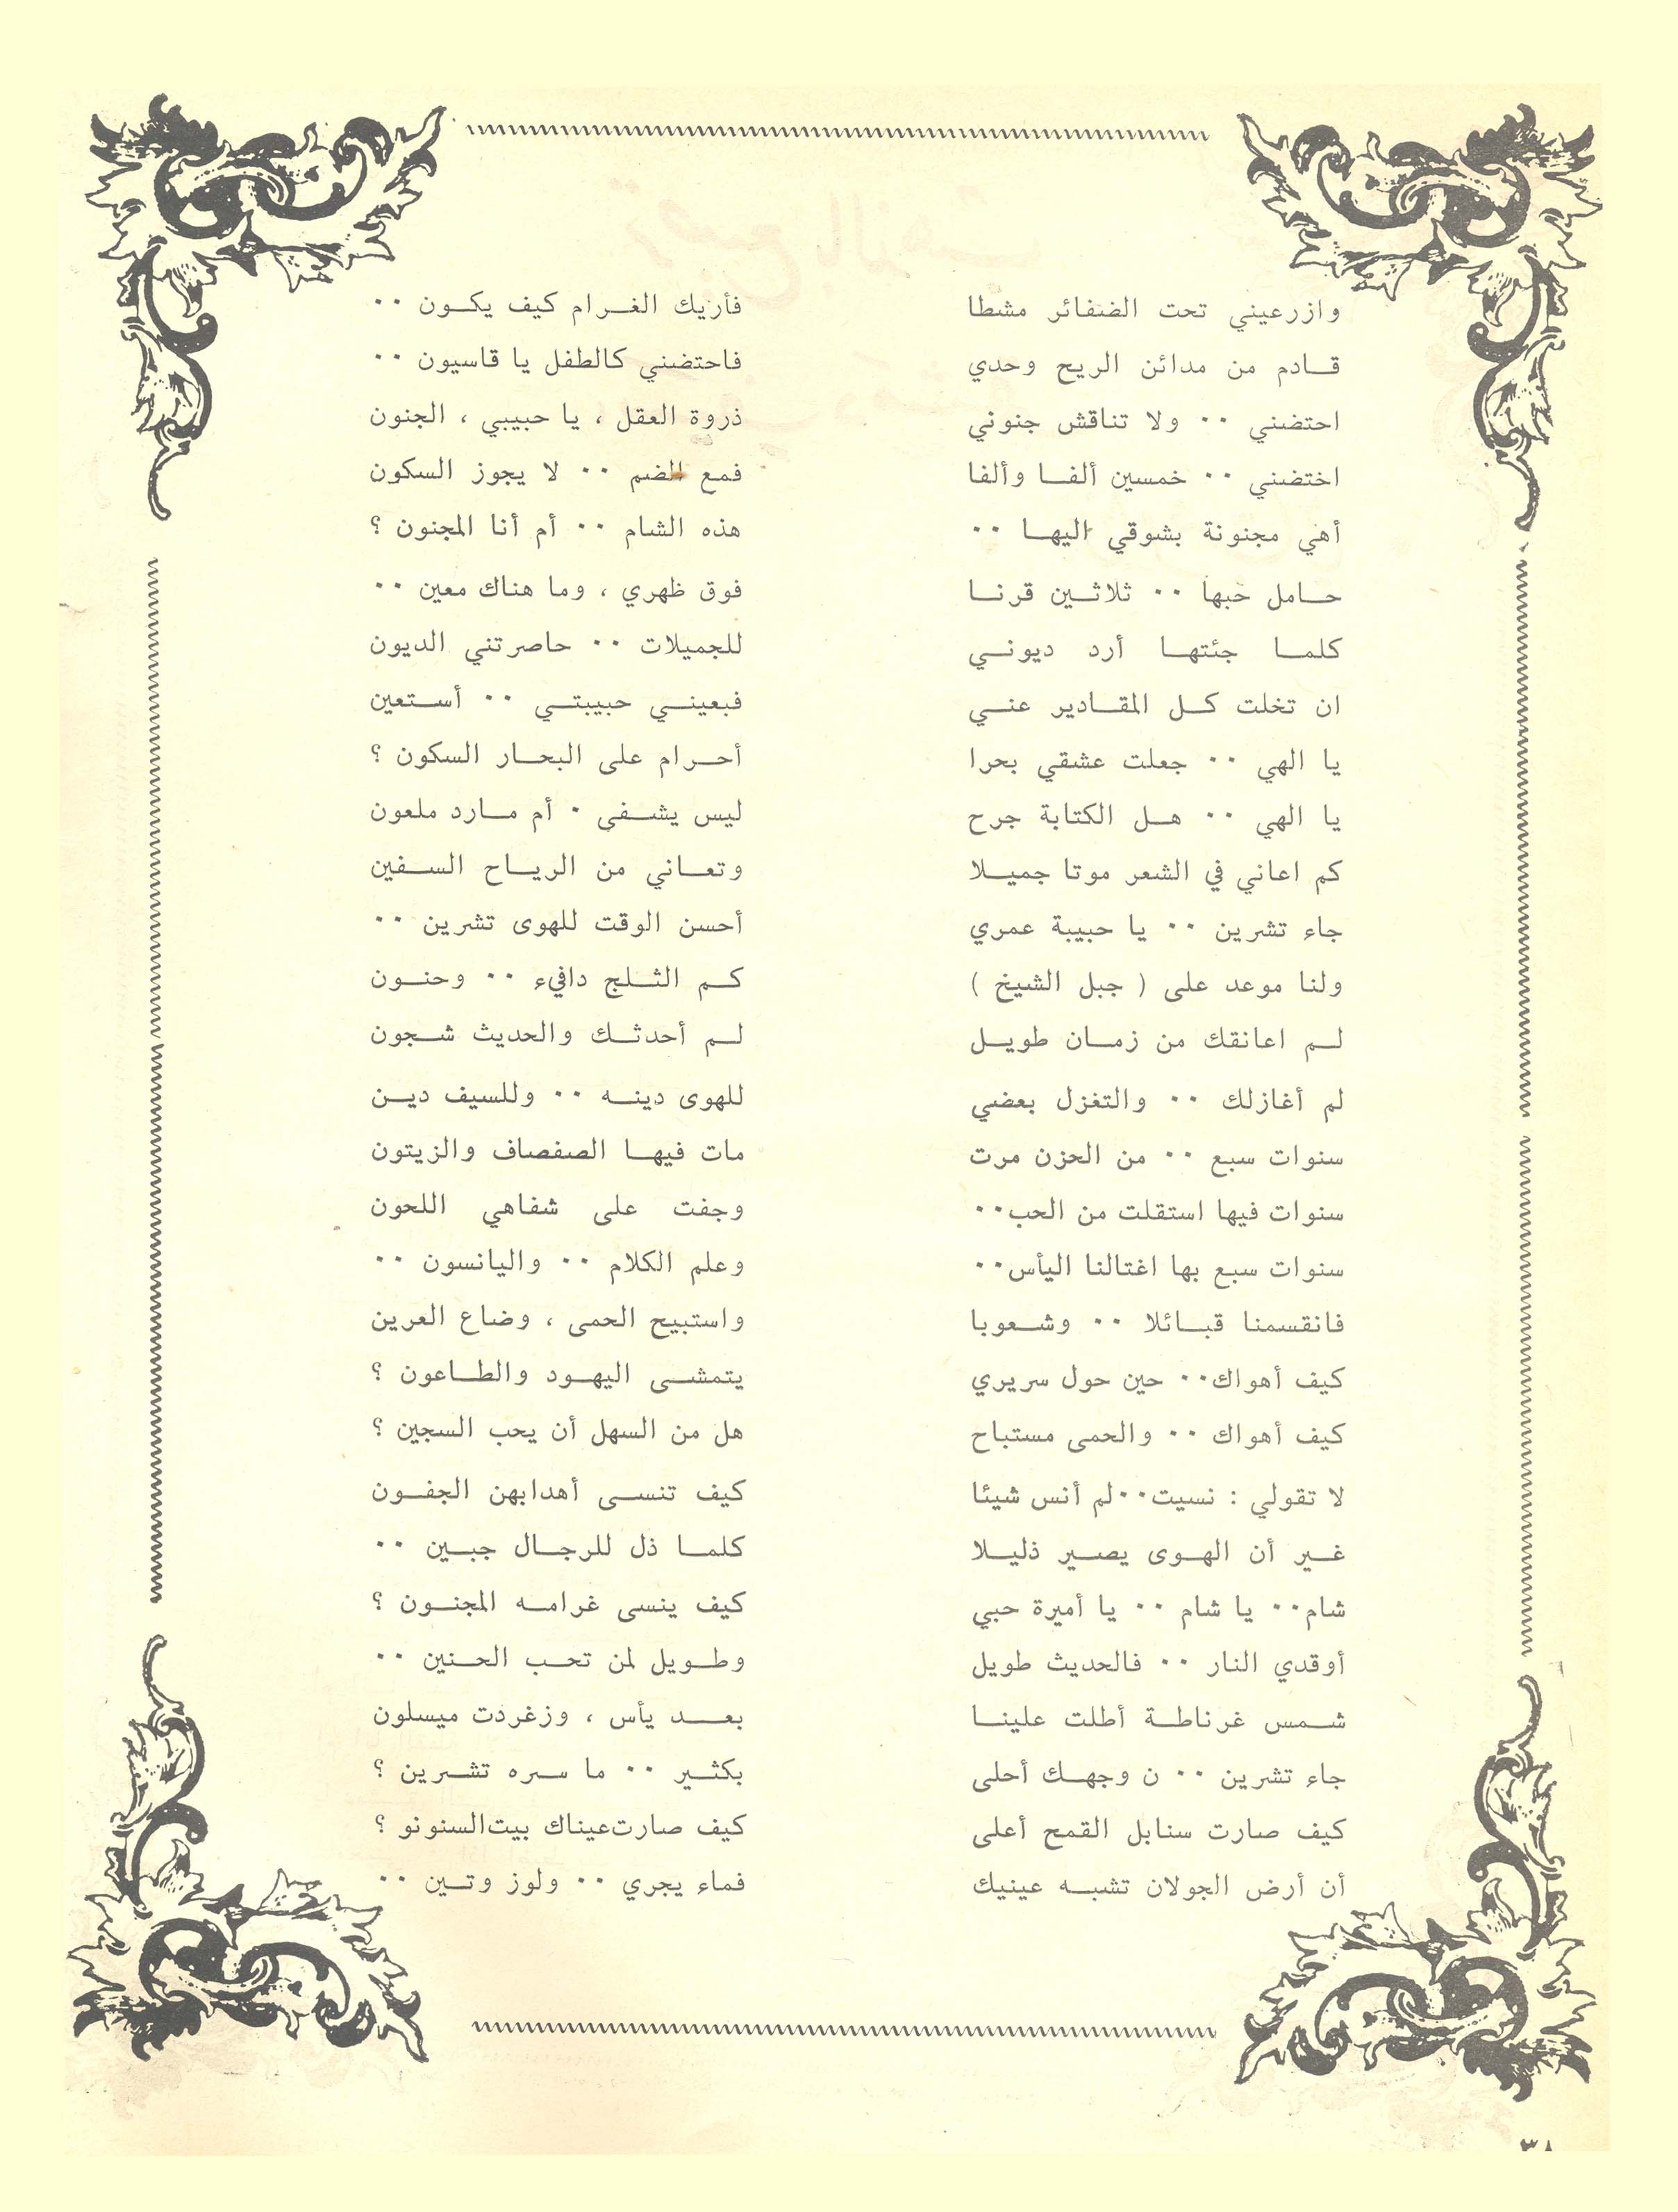 وازرعيني تحت الضفائر مشطا فأريك الغرام كيف يكون ٠٠
قادم من مدائن الريح وحدي فاحتضني كالطفل يا قاسيون ٠٠
احتضني ٠٠ ولا تناقش جنوني ذروة العقل ، يا حبيبي ، الجنون
اختضني ٠٠ خمسين ألفا وألفا فمع الضم ٠٠ لا يجوز السكون
أهي مجنونة بشوقي اليها ٠٠ هذه الشام ٠٠ أم أنا المجنون ؟
حامل حبها ٠٠ ثلاثين قرنا فوق ظهري ، وما هناك معين ٠٠
كلما جئتها أرد ديوني للجميلات ٠٠ حاصرتني الديون
ان تخلت كل المقادير عني فبعيني حبيبتي ٠٠ أستعين
يا الهي ٠٠ جعلت عشقي بحرا أحرام على البحار السكون ؟
يا الهي ٠٠ هل الكتابة جرح ليس يشفى ٠ أم مارد ملعون
كم اعاني في الشعر موتا جميلا وتعاني من الرياح السفين
جاء تشرين ٠٠ يا حبيبة عمري أحسن الوقت للهوى تشرين ٠٠
ولنا موعد على ( جبل الشيخ ) كم الثلج دافيء ٠٠ وحنون
لم اعانقك من زمان طويل لم أحدثك والحديث شجون
لم أغازلك ٠٠ والتغزل بعضي للهوى دينه ٠٠ وللسيف دين
سنوات سبع ٠٠ من الحزن مرت مات فيها الصفصاف والزيتون
سنوات فيها استقلت من الحب٠٠ وجفت على شفاهي اللحون
سنوات سبع بها اغتالنا اليأس٠٠ وعلم الكلام ٠٠ واليانسون ٠٠
فانقسمنا قبائلا ٠٠ وشعوبا واستبيح الحمى ، وضاع العرين
كيف أهواك٠٠ حين حول سريري يتمشى اليهود والطاعون ؟
كيف أهواك ٠٠ والحمى مستباح هل من السهل أن يحب السجين ؟
لا تقولي : نسيت٠٠لم أنس شيئا كيف تنسى أهدابهن الجفون
غير أن الهوى يصير ذليلا كلما ذل للرجال جبين ٠٠
شام٠٠ يا شام ٠٠ يا أميرة حبي كيف ينسى غرامه المجنون ؟
أوقدي النار ٠٠ فالحديث طويل وطويل لمن تحب الحنين ٠٠
شمس غرناطة أطلت علينا بعد يأس ، وزغردت ميسلون
جاء تشرين ٠٠ ن وجهك أحلى بكثير ٠٠ ما سره تشرين ؟
كيف صارت سنابل القمح أعلى كيف صارت عيناك بيت السنونو ؟
أن أرض الجولان تشبه عينيك فماء يجري ٠٠ ولوز وتين ٠٠